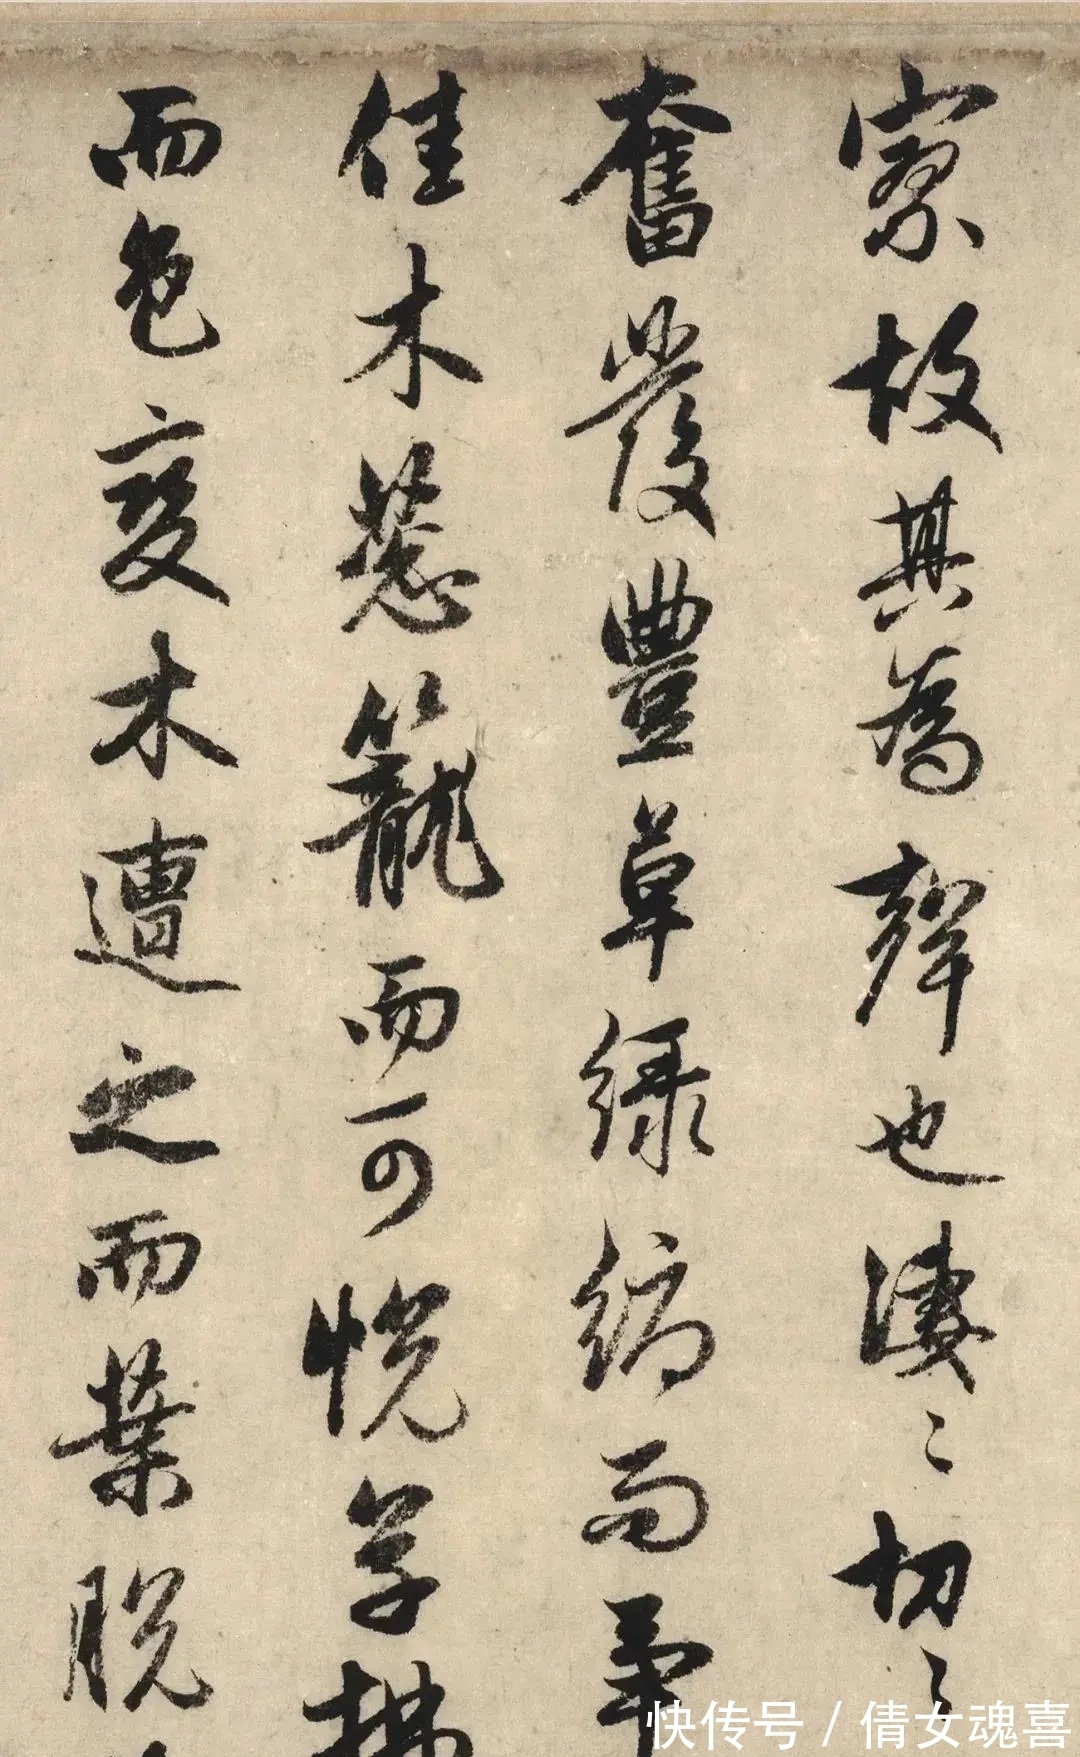 寥故其為聲也淒〻切〻
奮發豐草綠縟而爭
佳木蔥籠而可悅草拂
而色變木遭之而葉脫
快传号 / 倩女魂喜